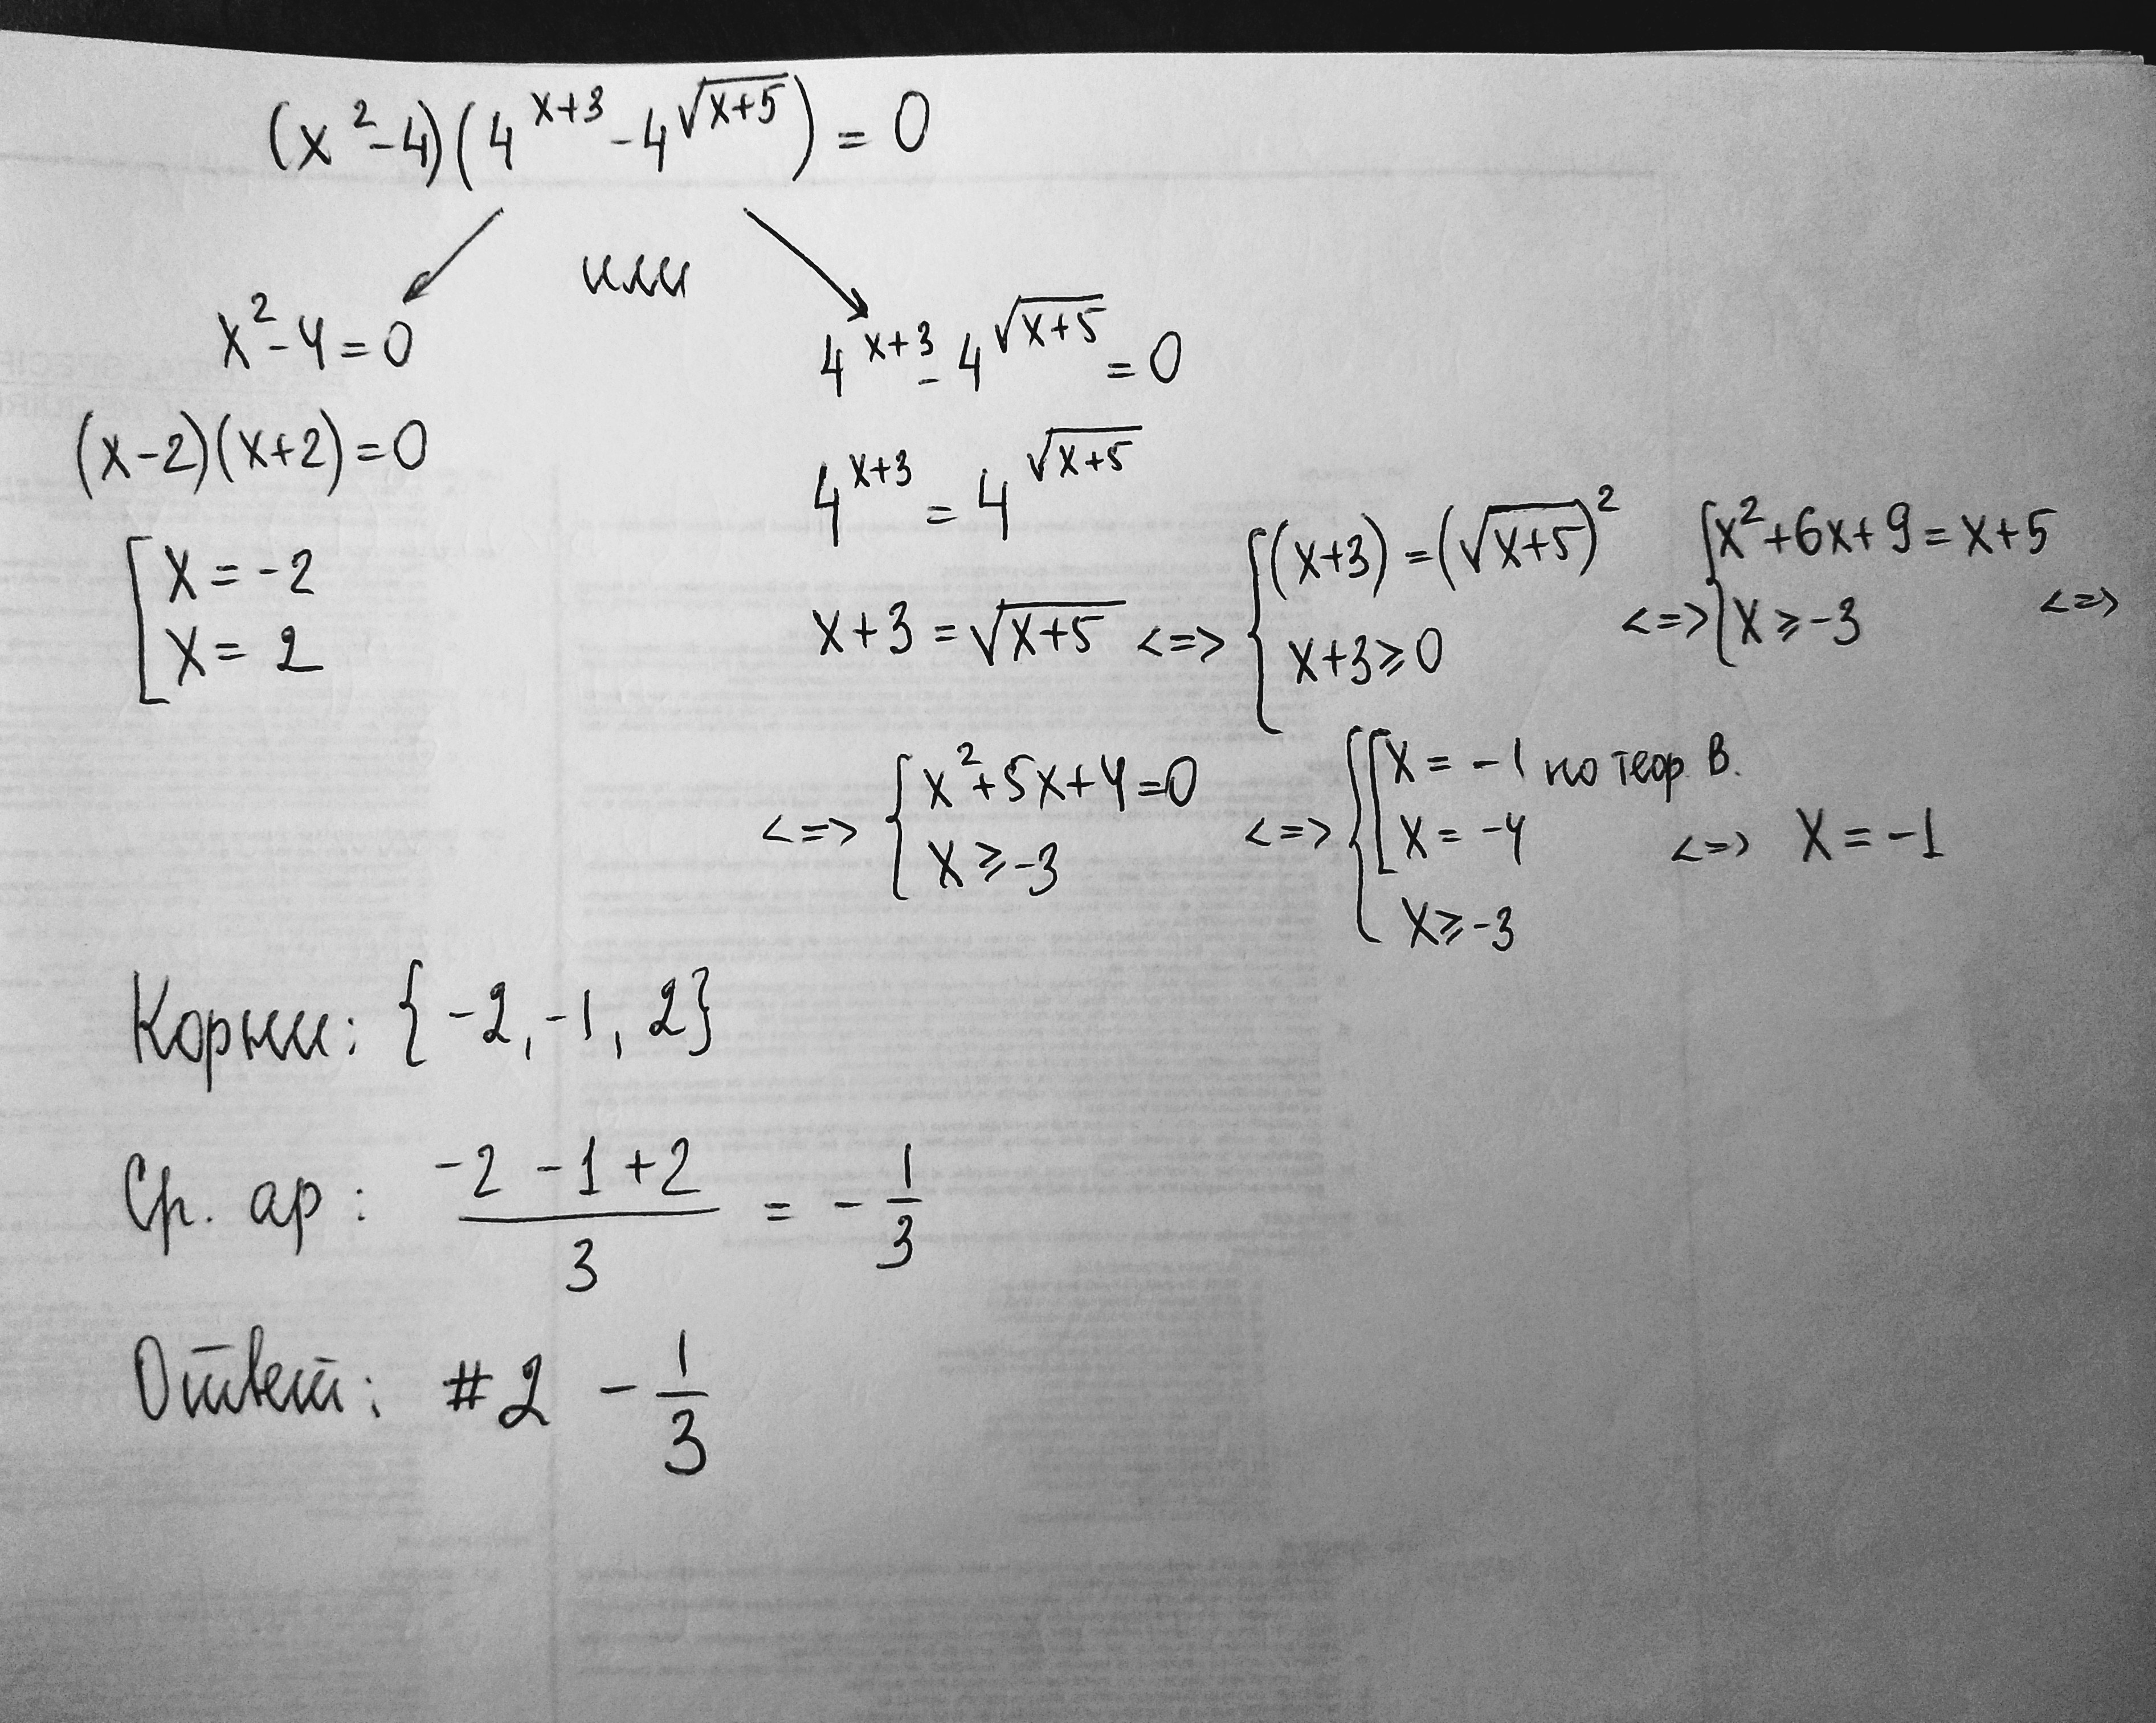 (x²-4)(4^{x+3} - 4^{√(x+5)}) = 0
или
x²-4=0
(x-2)(x+2)=0
[x = -2
x = 2
4^{x+3} - 4^{√(x+5)} = 0
4^{x+3} = 4^{√(x+5)}
x+3 = √(x+5) <=> {(x+3) = (√(x+5))² <=> {x²+6x+9 = x+5 <=>
x+3 ≥ 0
x ≥ -3
<=> {x²+5x+4=0 <=> {[x = -1 по теор В. <=> x = -1
x ≥ -3
x = -4
x ≥ -3
Корни: {-2, -1, 2}
Ср. ар: (-2 -1 +2)/3 = - 1/3
Ответ: #2 - 1/3